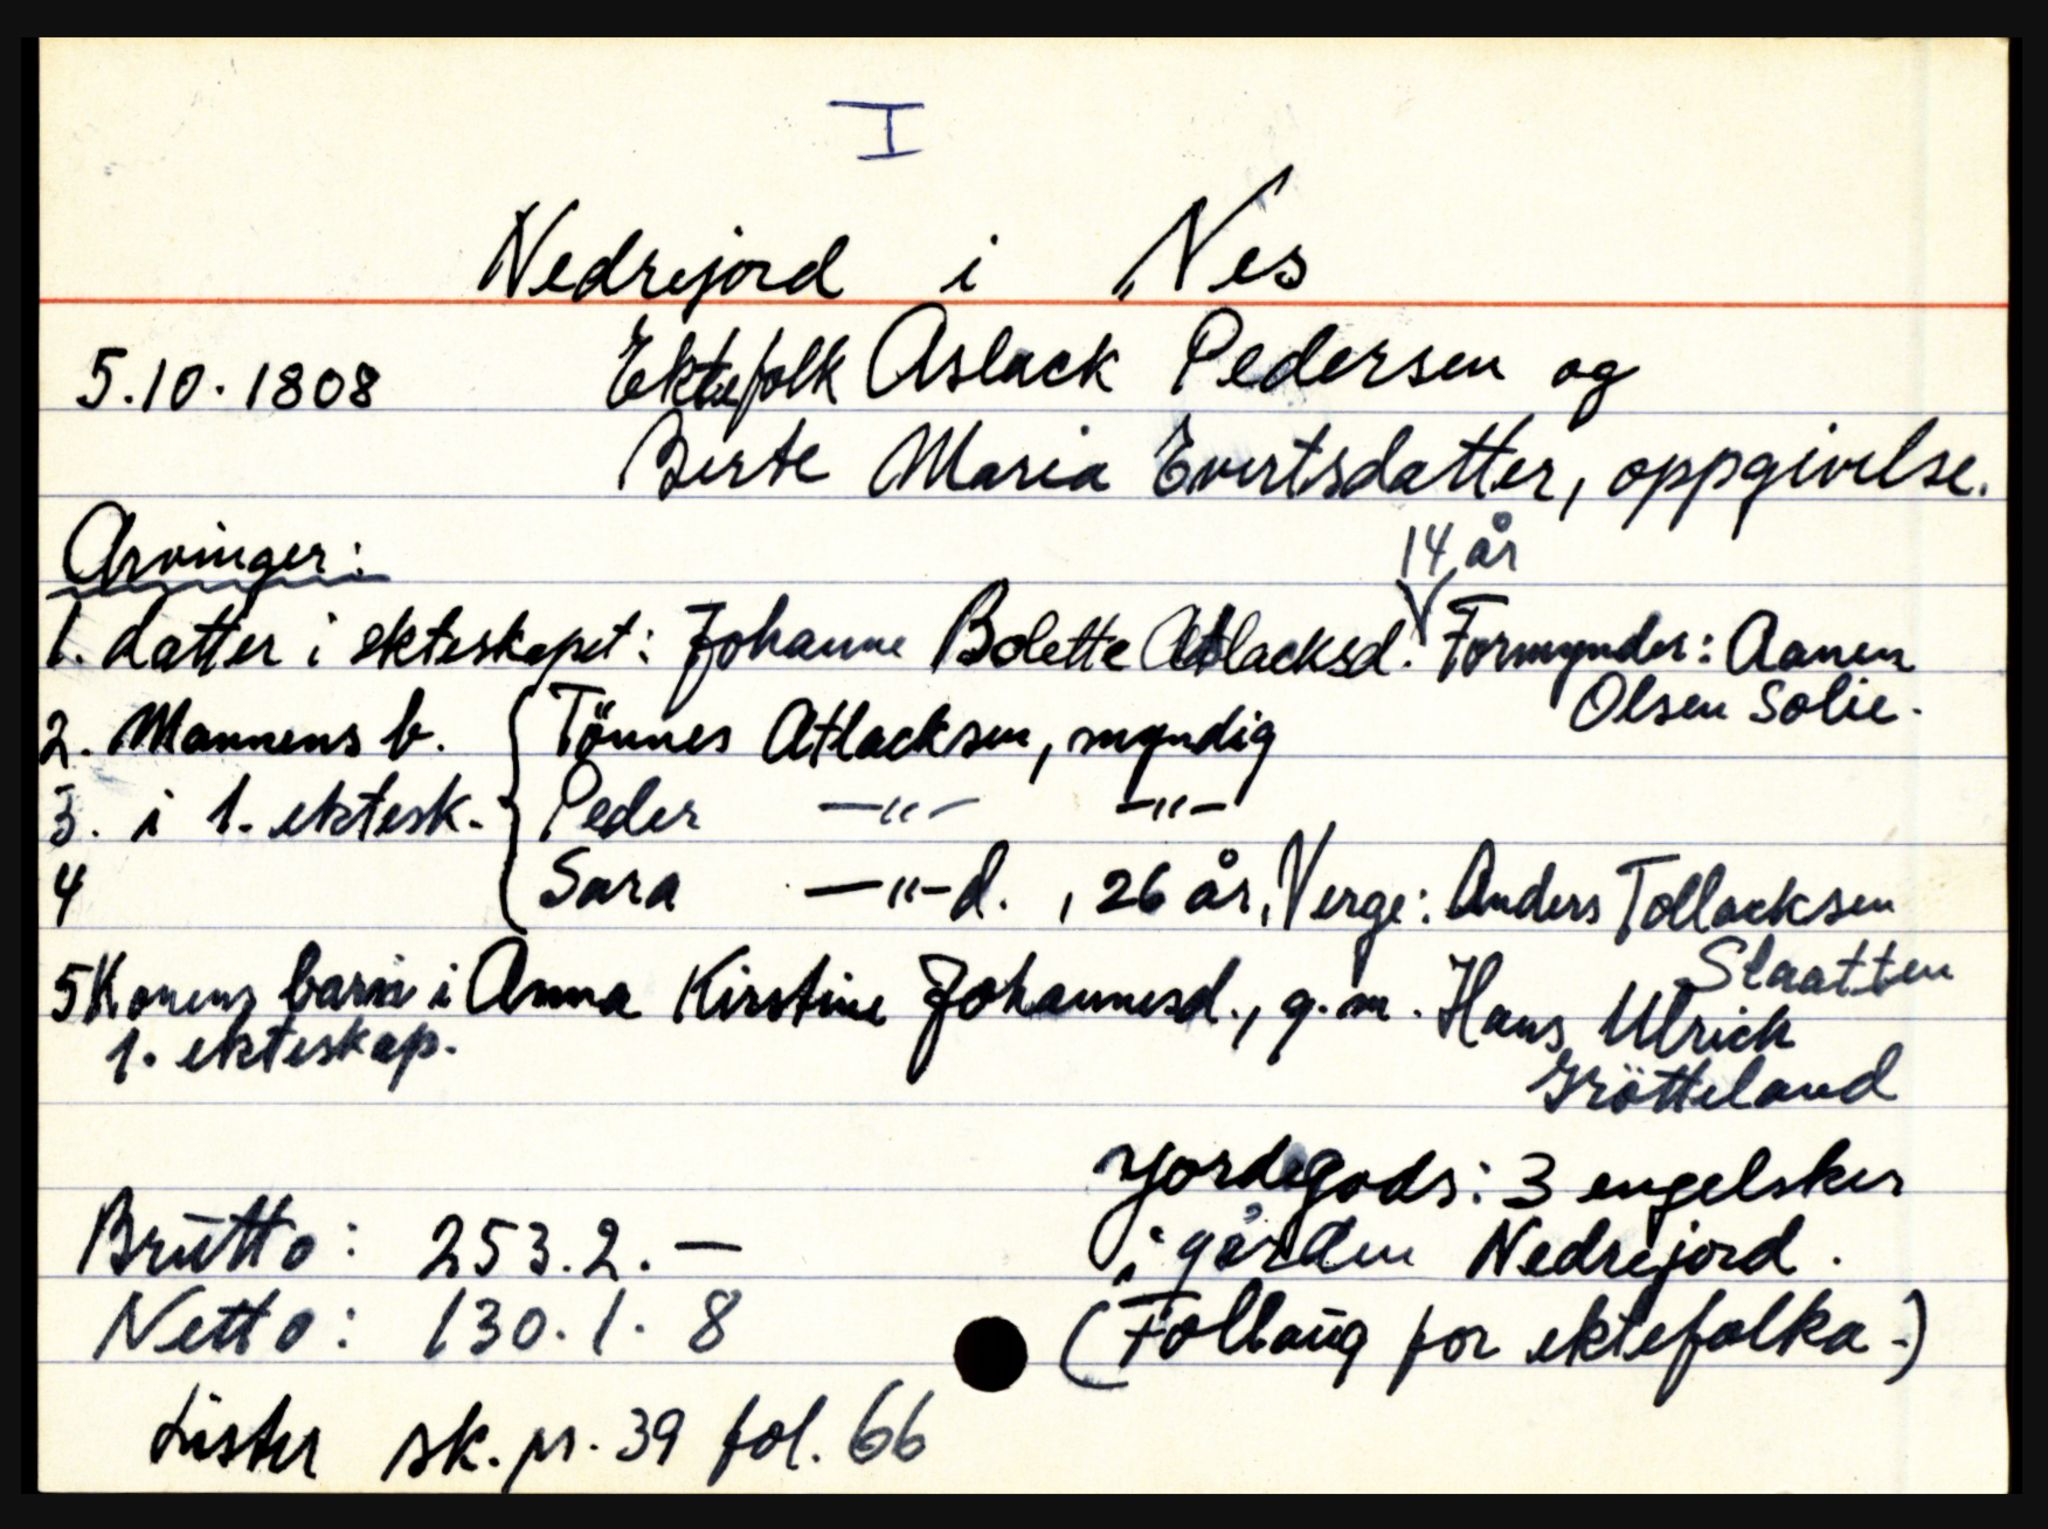 I
Nedrejord i Nes
5.10.1808 Ektefolk Aslack Pedersen og
Berte Maria Evertsdatter, oppgivelse.
Arvinger:
14 år
1. datter i ekteskapet: Johanne Bolette Atlacksd. Formynder: Aanen
Olsen Solie.
2. Mannens b. Tönnes Atlacksen, myndig
3. i 1. ektesk. Peder —"— —"—
4 Sara —"—d., 26 år, Verge: Anders Tollacksen
Slaatten
5 Konens barn i Anna Kirstine Johannesd., g.m. Hans Ulrick
1. ekteskap.
Grötteland
Jordegods: 3 engelsker
Brutto: 253.2.— i gården Nedrejord.
Netto: 130.1.8 (Follaug for ektefolka.)
Lister sk.pr. 39 fol. 66